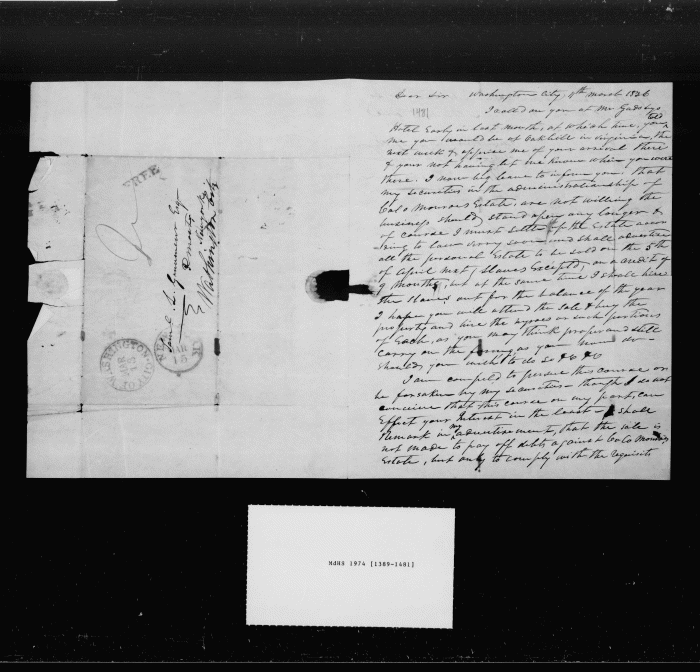 FREE
Saml L. Gouverneur Esq
Washington City
WASHINGTON CITY
MAR
15
Dear Sir Washington City, 4th March 1836
1481
I called on you at Mr Gadsbys
Hotel Early in last month, at which time, you told
me you would be at Oakhill in virginia, the
next week & apprise me of your arrival there
& your not having let me know when you were
there. I now beg leave to inform you, that
my securities in the administratorship of
Colo Monroes Estate, are not willing the
business should stand open any longer &
of course I must settle up the Estate accor
ding to law very soon and shall advertise
all the personal Estate to be sold on the 5th
of April next (slaves Excepted) on a credit of
9 months, but at the same time I shall hire
the slaves out for the balance of the year
I hope you will attend the sale & buy the
property and hire the negroes or such portions
of Each, as you may think proper and still
carry on the farming, as you now do
should you wish to do so &c &c
I am compeled to pursue this course or
be forsaken by my securities - though I do not
conceive that this course on my part, can
Effect your Interest in the least - I shall
Remark in my advertisement, that the sale is
not made to pay off debts against Colo Monroes
Estate, but only to comply with the requisits
MdHS 1974 [1389-1481]